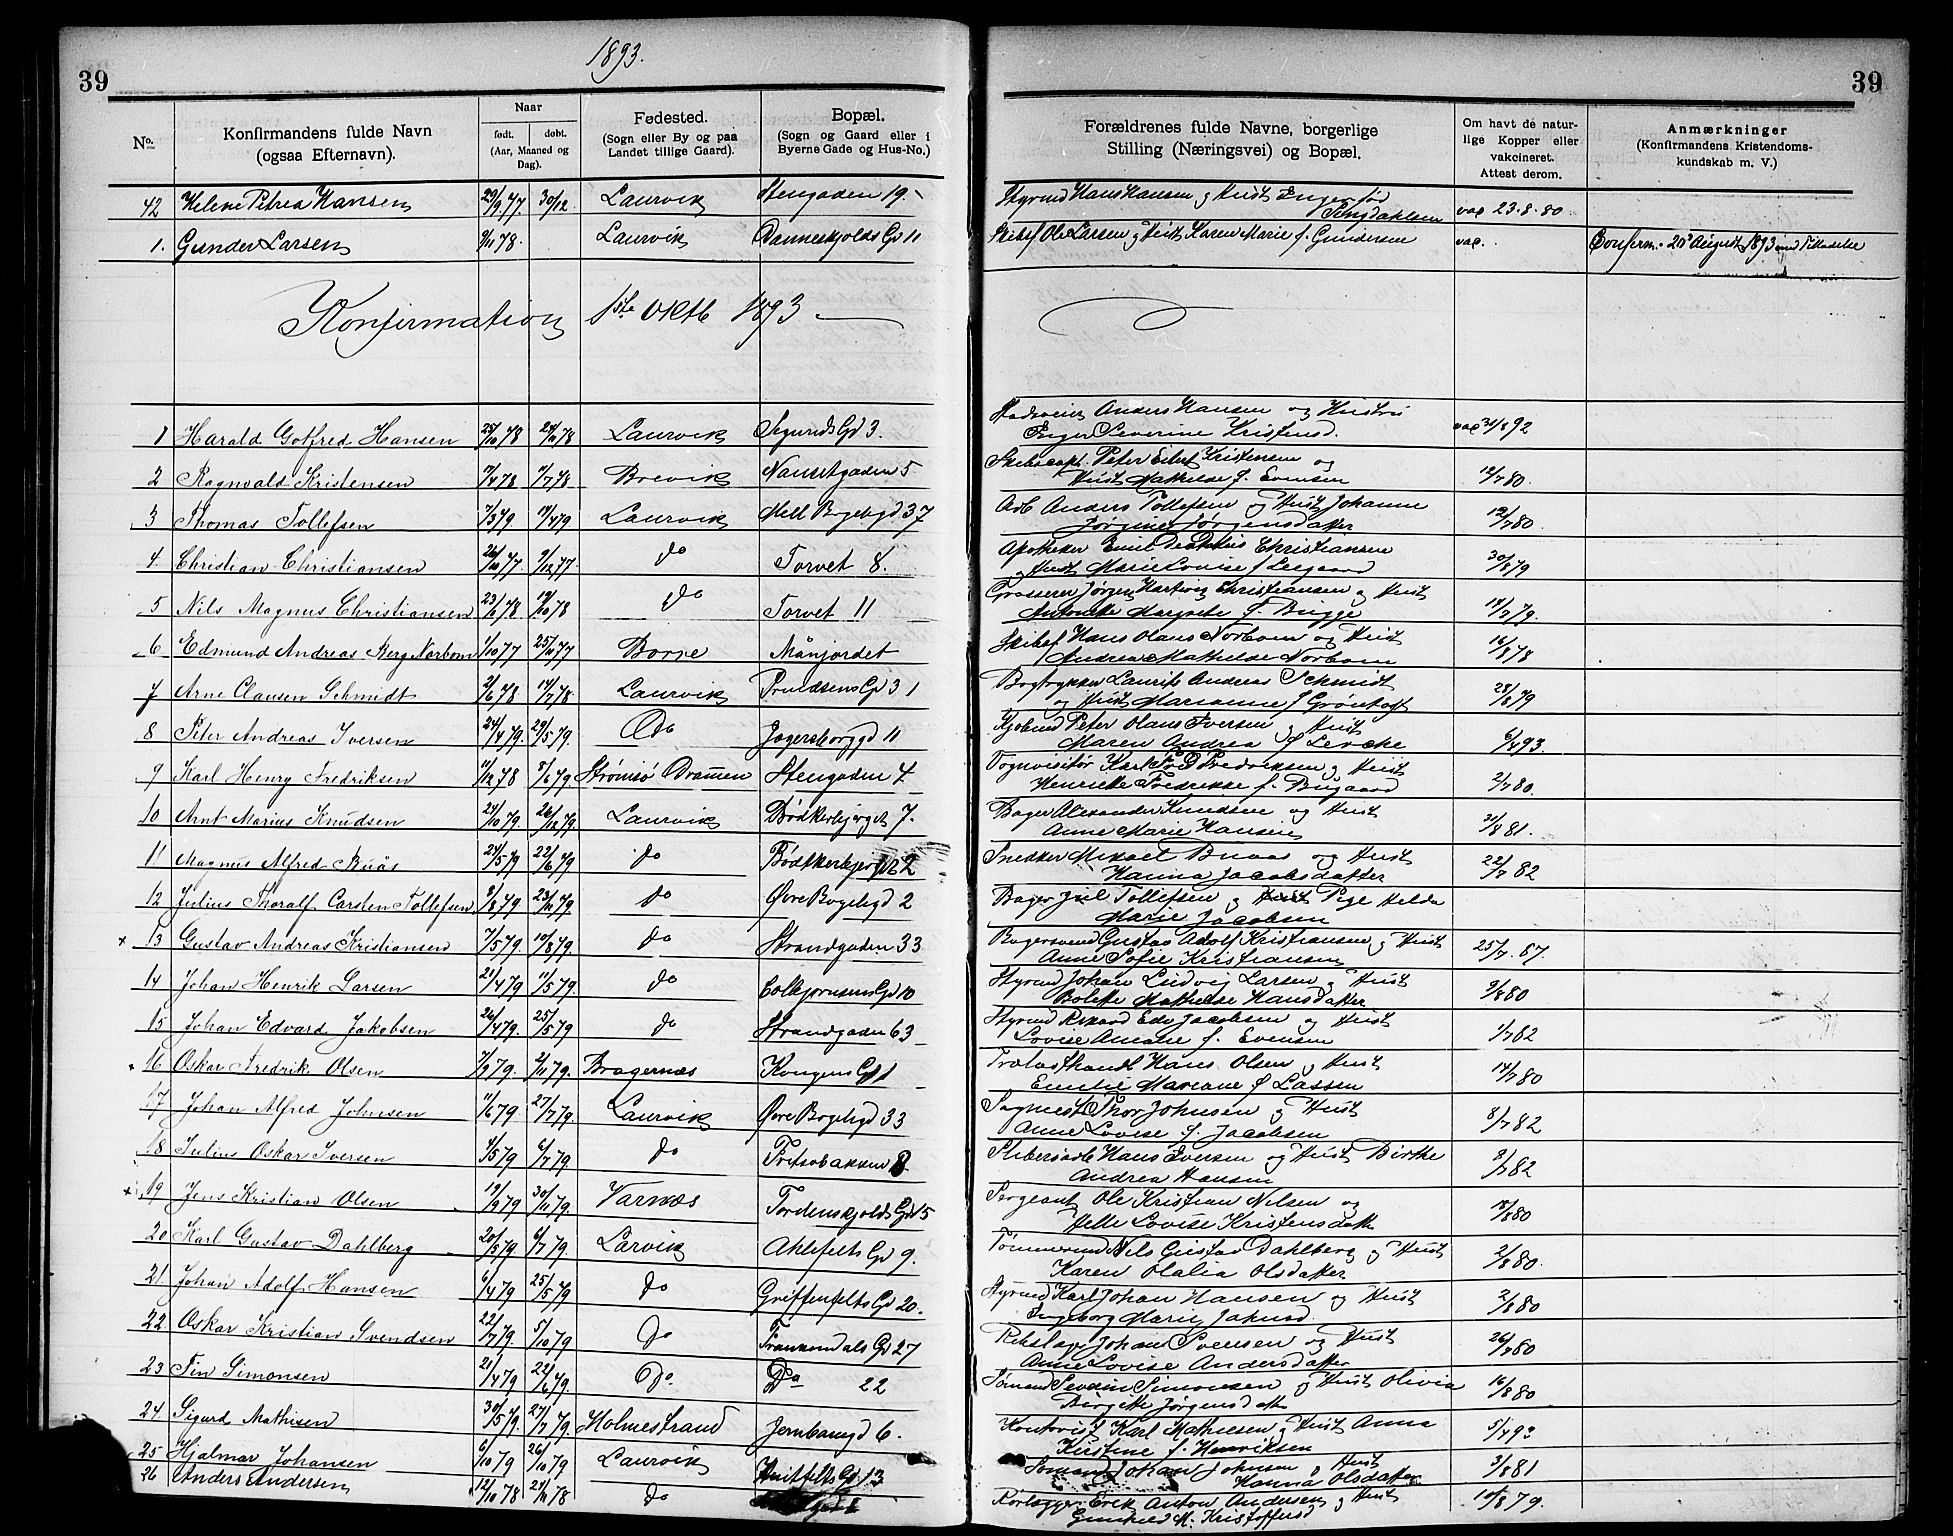 1893.
39
39
No.
Konfirmandens fulde Navn
(ogsaa Efternavn).
Naar
født. døbt.
(Aar, Maaned og Dag).
Fødested.
(Sogn eller By og paa
Landet tillige Gaard).
Bopæl.
(Sogn og Gaard eller i
Byerne Gade og Hus-No.)
Forældrenes fulde Navne, borgerlige
Stilling (Næringsvei) og Bopæl.
Om havt de natur-
lige Kopper eller
vakcineret.
Attest derom.
Anmærkninger
(Konfirmandens Kristendoms-
kundskab m. V.)
42 Helene Petrea Hansen 29/9 77. 30/12 Laurvik Stengaden 19. Styrmd Hans Hansen og Hust Inger vac 23.8.80
1. Gunder Larsen 9/11 78. Laurvik Danneskjolds Gd 11 Skibsf Ole Larsen og Hust Karen Marie f. Gundersen vac. Confirm. 20 August 1893 med Tilladelse
Konfirmation 1ste Oktb 1893
1 Harald Gotfred Hansen 25/10 78 24/11 78 Laurvik Sigurds Gd 3. Anders Hansen og Hustru
Inger Severine Kristensd. vac 31/8 92
2 Ragnvald Kristensen 7/4 78 7/7 78 Brevik Nansetgaden 5 Skibscapt. Peter Eilert Kristensen og
Hust Mathilde f. Evensen 12/7 80.
3 Thomas Tollefsen 7/3 79 14/4 79 Laurvik Mell Bøgeligd 37 Arb Anders Tollefsen og Hust Johanne
Jørgine Jørgensdatter 12/7 80.
4. Christian Christiansen 26/10 77 9/12 77. do Torvet 8. Apotheker Emil Christiansen
og Hust Marie Louise f Leegaard 30/8 79
5 Nils Magnus Christiansen 78 78 do Torvet 11 Grosserer Jørgen Hartvig Christiansen og Hust
Antonette Margrete f. Bugge 14/7 79.
6 Edmund Andreas Berg Norbom 1/10 77 25/11 77 Borre Månejordet Skibsf Hans Olaus Norbom og Hust
Andrea Mathilde Norbom 16/8 78
7 Arne Clausen Schmidt 2/6 78 14/7 78. Laurvik Prindsens Gd 31 Bogtrykker Laurits Andreas Schmidt
og Hust Marianne f Grøntoft 28/8 79
8 Peter Andreas Iversen 24/4 79. 29/5 79. Do Jegersborggd 11 Peter Olaus Iversen og Hust
Maren Andrea f Lercke 6/4 93.
9 Karl Henry Fredriksen 11/12 78 8/6 79. Strømsø Drammen Stengaden 4 Togvisitør Karl Fredriksen og Hust
Henriette Fredrikke f. Bugaard 2/7 80.
10 Arnt Marius Knudsen 24/10 79. 26/12 79 Laurvik Bødkerbjerget 7. Bager Alexander Knudsen og Hust
Anne Marie Hansen 31/8 81.
11 Magnus Alfred Buås 24/5 79 22/6 79 do Snekker Mikael Buaas og Hust
Hanna Jacobsdatter 22/7 82
12 Julius Thoralf Carsten Tollefsen 8/8 79. 23/11 79. do Øvre Bøgeligd 2 Bager Tollefsen og Pige Helda
Marie Jacobsen
x 13 Gustav Andreas Kristiansen 7/5 79. 10/8 79. do Strandgaden 33 Bagersvend Gustav Adolf Kristiansen og Hust
Anne Sofie Kristiansen 25/7.87.
14 Johan Henrik Larsen 21/4 79 11/5 79. do Colbjørnsens Gd 10 Styrmd Johan Ludvig Larsen og Hust
Bolette Mathilde Hansdatter 9/8 80
15 Johan Edvard Jakobsen 26/4 79. 25/5 79 do Strandgaden 63 Styrmd Rikard Edv Jacobsen og Hust
Lovise Amalie f. Evensen 1/7 82
16 Oskar Fredrik Olsen 7/9 79. 2/11 79. Bragernæs Kongens Gd 1 Trælasthandl Hans Olsen og Hust
Emilie Mariane f Lassen 14/7 80
17 Johan Alfred Johnsen 11/6 79. 27/7 79 Laurvik Øvre Bøgeligd 33 Sagmest Thor Johnsen og Hust
Anne Lovise f. Jacobsen 8/7 82
18 Julius Oskar Iversen 4/5 79 6/7 79. do Fritsøbakken 8. Hans Iversen og Hust Birthe
Andrea Hansen 8/7 82
x 19 Jens Kristian Olsen 19/9 79 30/11 79. Varnæs Tordenskjolds Gd 15 Sergeant Ole Kristian Nilsen og
Helle Lovise Kristensdatt 80
20 Karl Gustav Dahlberg 20/5 79 6/7 79. Larvik Ahlefelts Gd 9. Tømmermd Nils Gustav Dahlberg og Hust
Karen Olalia Olsdatter 2/8 80.
21 Johan Adolf Hansen 6/4 79 25/5 79 do Griffenfelts Gd 20. Styrmd Karl Johan Hansen og Hust
Ingeborg Marie 2/8 80
22 Oskar Kristian Svendsen 22/7 79. 5/10 79 Do Frankendals Gd 27 Rebslager Johan Svensen og Hust
Anne Lovise Andersdatter 26/7 80
23 Fin Simonsen 21/4 79 22/6 79. Do. Do 22 Sømand Severin Simonsen og Hust Olivia
Birgitte Jørgensdatt 16/8 80
24 Sigurd Mathisen 30/5 79. 27/7 79. Holmestrand Jernbanegd 6. Kontorist Karl Mathiesen og Hust Anna
Kirstine f. Henriksen 5/4 93
25 Hjalmar Johansen 6/10 79 26/10 79 Laurvik Huitfelts Gd 13 Sømand Johan Johnsen og Hust
Hanna Olsdatter 3/8 81
26 Anders Andersen 12/10 78 24/11 78 do Rorlægger Erik Anton Andersen og Hust
Gunhild M. Kristoffersd 10/8 79.